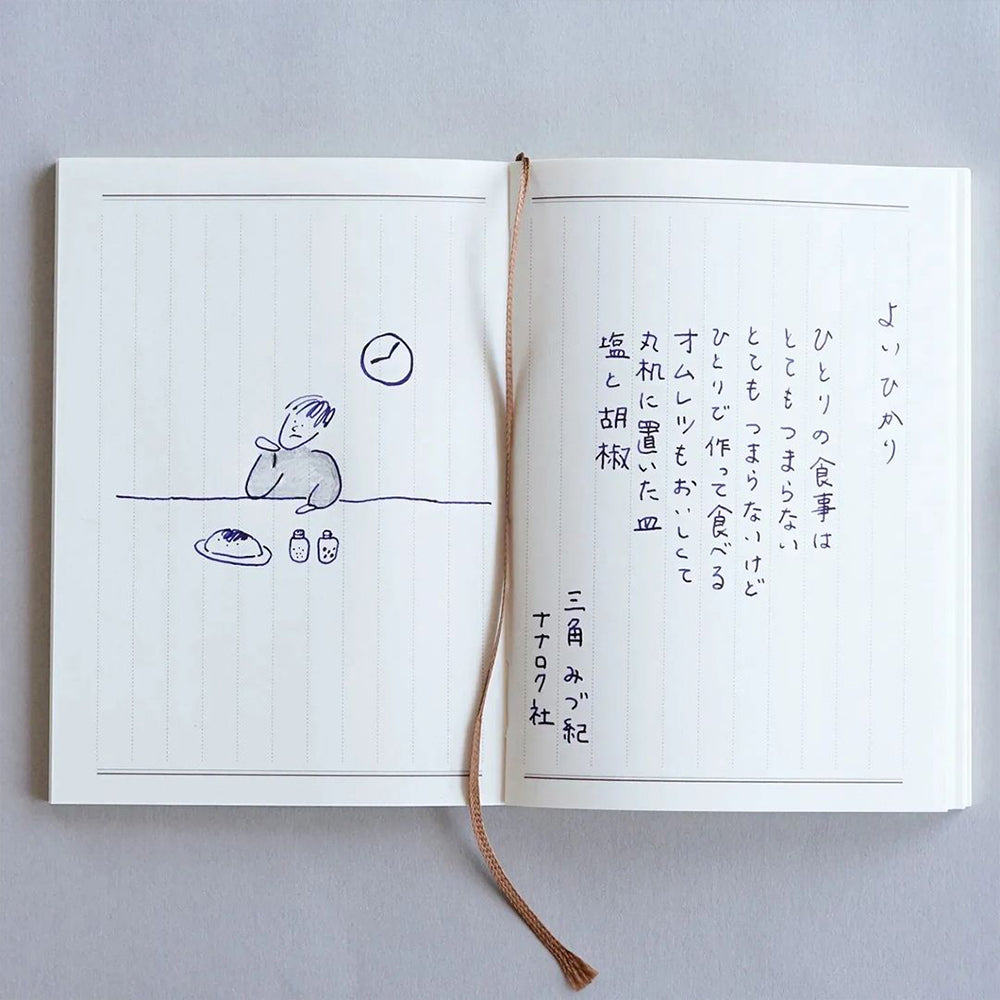 よいひかり
ひとりの食事は
とてもつまらない
とてもつまらないけど
ひとりで作って食べる
オムレツもおいしくて
丸机に置いた皿
塩と胡椒
三角みづ紀
ナナロク社